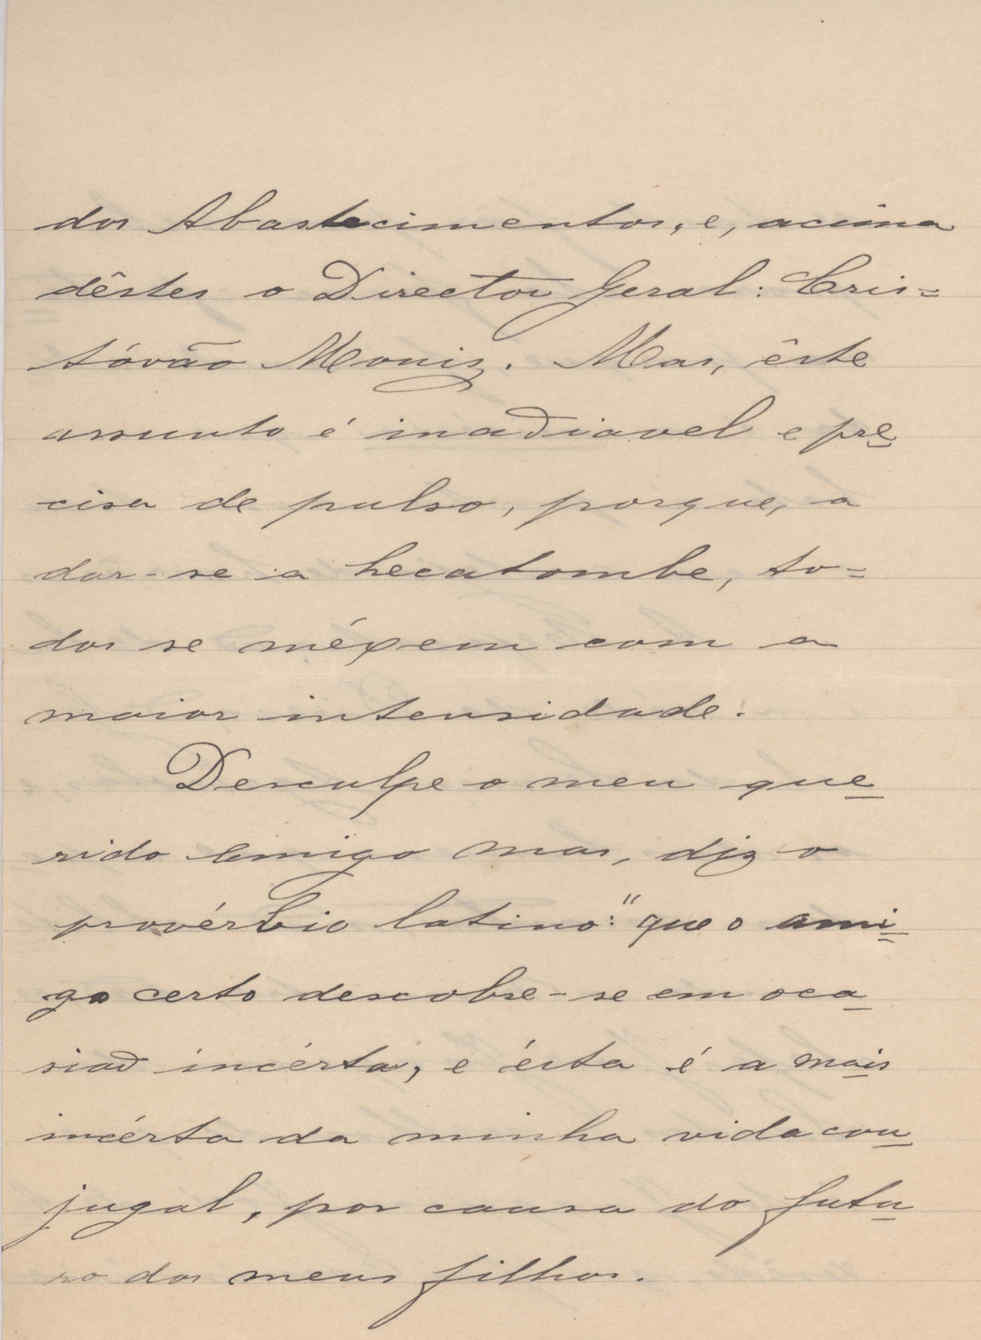 dos Abastecimentos, e, acima
dêstes o Director Geral: Cris=
tóvão Moniz. Mas, êste
assunto é inadiavel e pre
cisa de pulso, porque, a
dar-se a hecatombe, to=
dos se méxem com a
maior intensidade.
Desculpe o meu que
rido Amigo mas, diz o
provérbio latino: "que o ami
go certo descobre-se em oca
sião incérta, e ésta é a mais
incérta da minha vida con
jugal, por causa do futu
ro dos meus filhos.